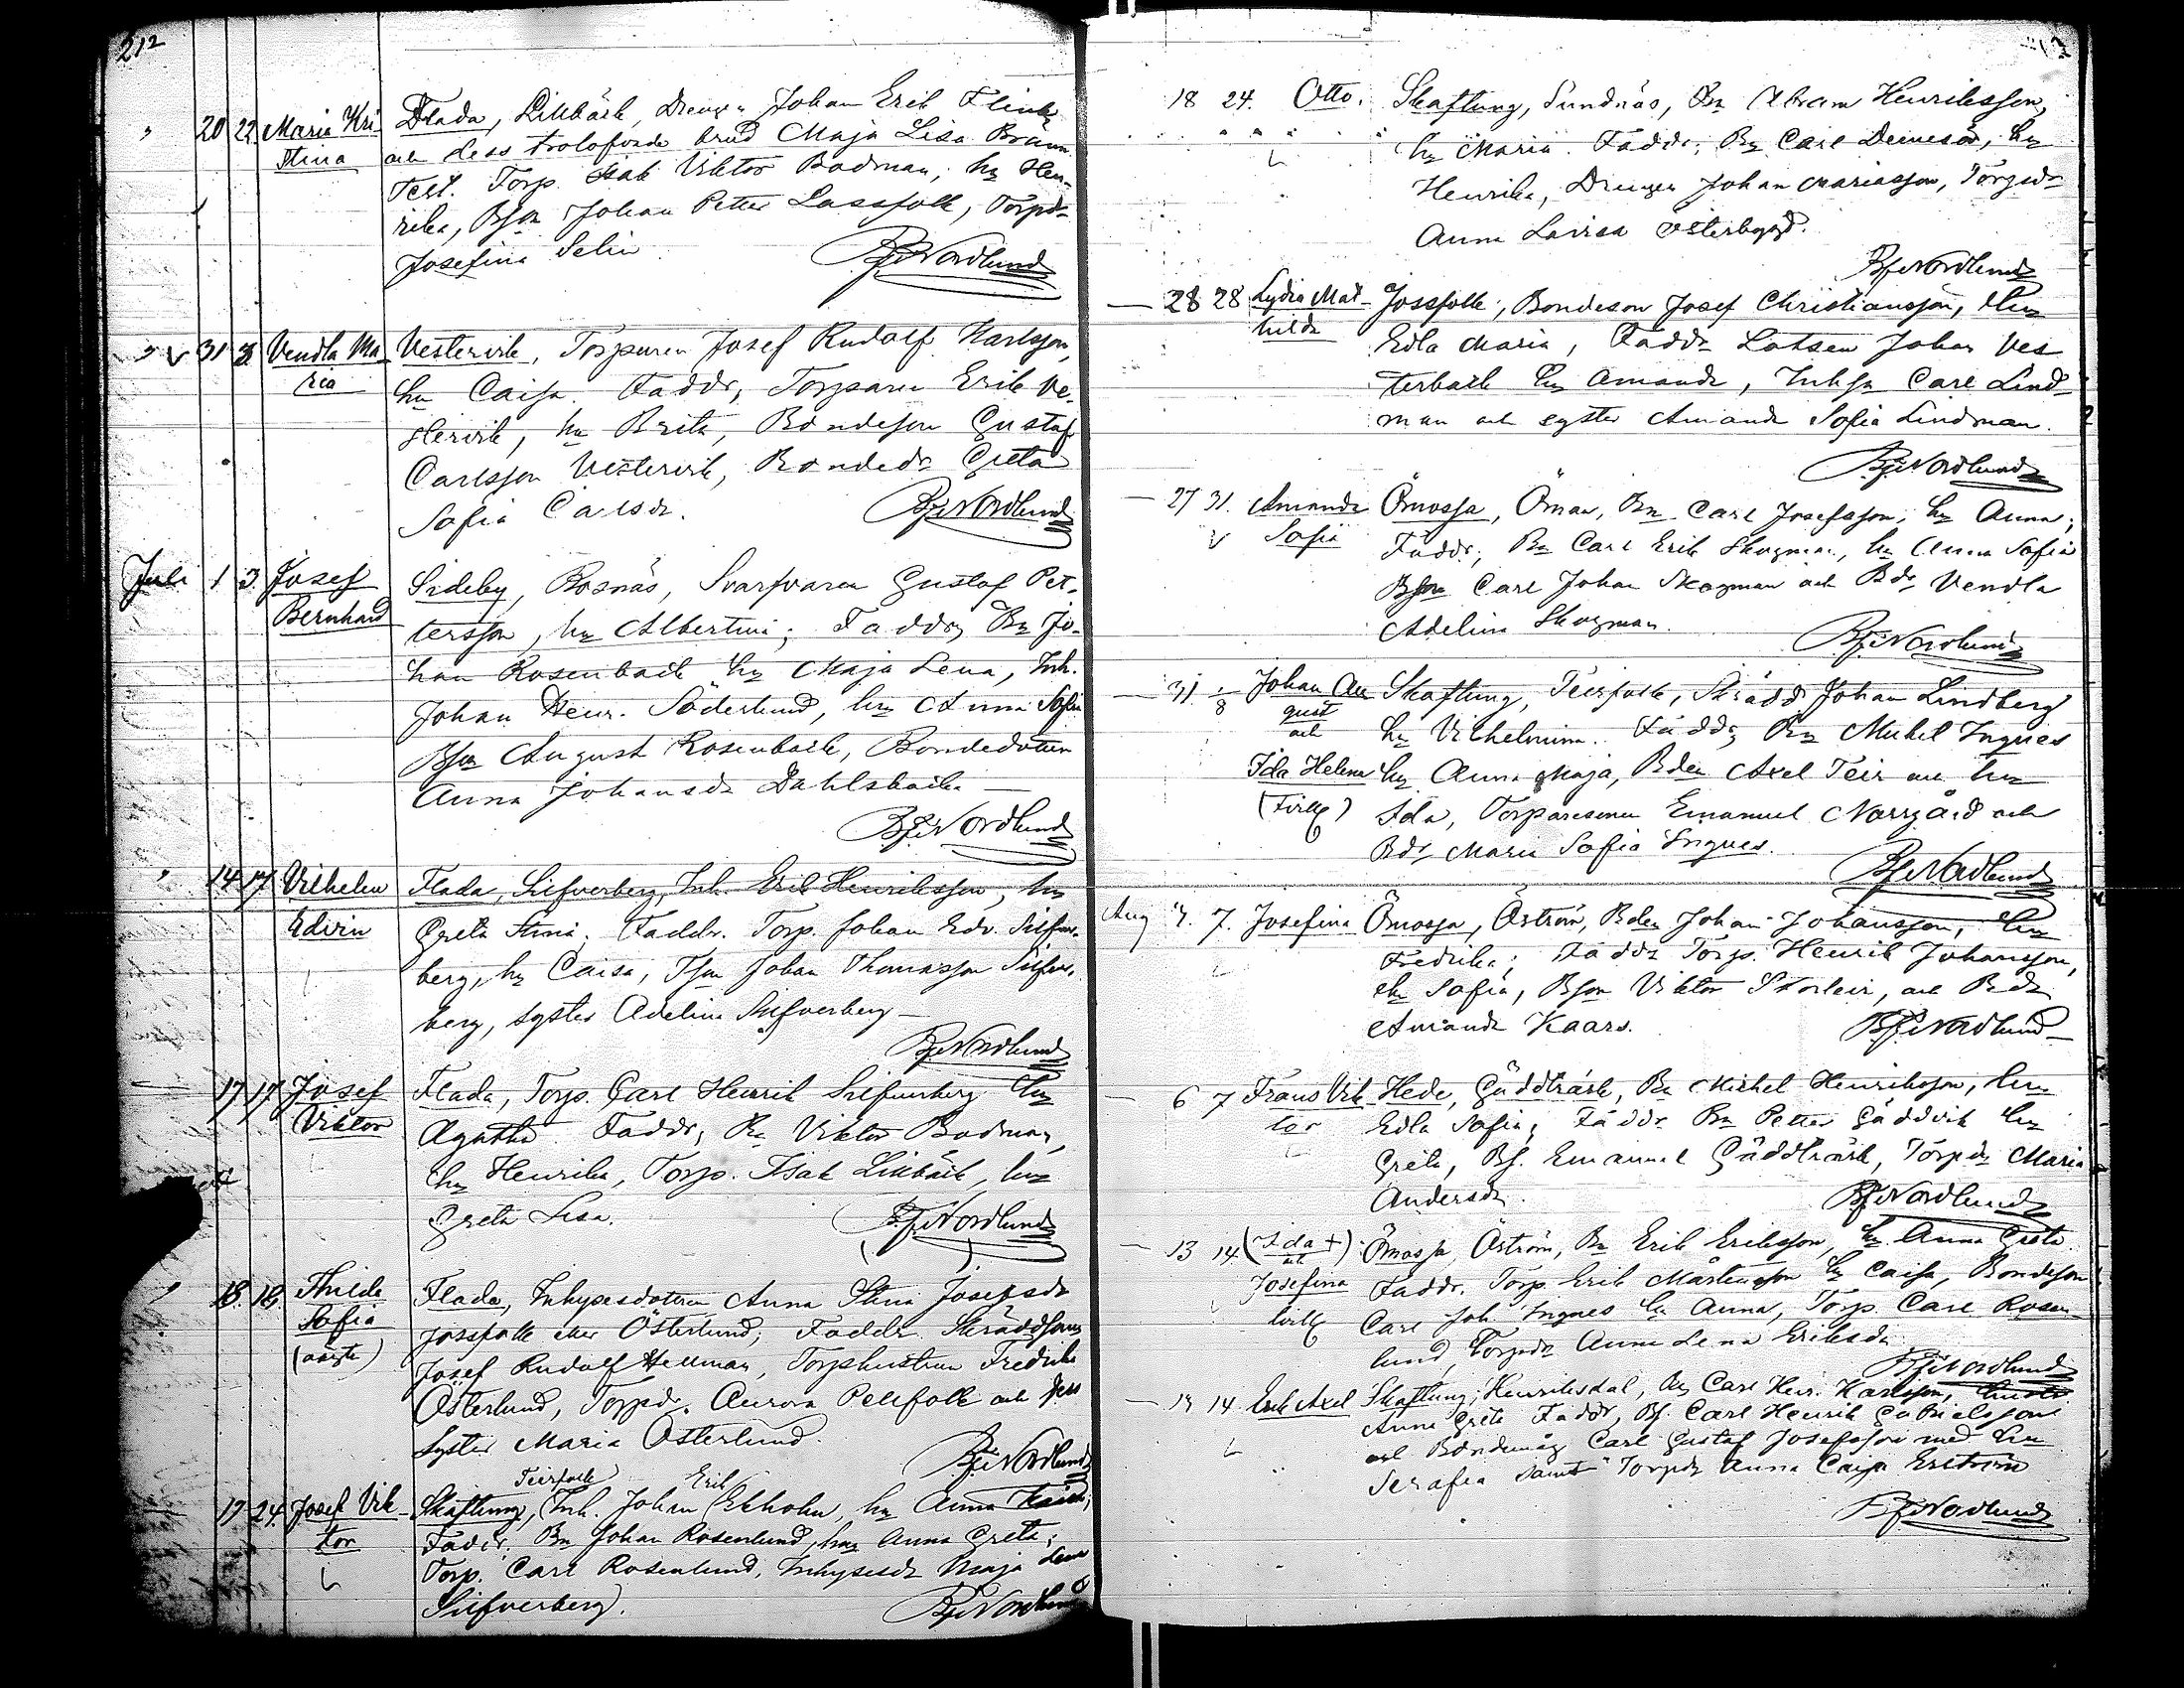 212
" 20 22. Maria Kri- Flada, Lillbäck, Drengen Johan Erik Flink
stina och dess trolofvade brud Maja Lisa Bränn
Test. Torp. Isak Viktor Bodman, hu Hen-
rika, Bson Johan Petter Lassfolk, Torpdr
Josefina Selin
BfeNordlund
" v 31 3 Vendla Ma- Vestervik, Torparen Josef Rudolf Karlsson,
ria hu Caisa. Faddr, Torparen Erik Ve-
stervik, hu Brita, Bondeson Gustaf
Carlsson Vestervik, Bondedr Greta
Sofia Carlsdr.
BfeNordlund
Juli 1 3. Josef Sideby, Rosnäs, Svarfvaren Gustaf Pet-
Bernhard tersson, hu Albertina; Faddr, Bn Jo-
han Rosenback hu Maja Lena, Inh.
Johan Henr. Söderlund, hu Anna Sofia
Bson August Rosenback, Bondedottern
Anna Johansdr Dahlsbacka —
BfeNordlund
" 14 17 Vilhelm Flada, Silfverberg, Inh. Erik Henriksson, hu
Edvin Greta Stina. Faddr. Torp. Johan Edv. Silfver-
berg, hu Caisa, Tson Johan Thomasson Silfver-
berg, syster Adelina Silfverberg —
BfeNordlund
— 17 17 Josef Flada, Torp. Carl Henrik Silfverberg hu
Viktor Agatha. Faddr, Bn Viktor Bodman,
hu Henrika, Torp. Isak Lillbäck, hu
Greta Lisa.
BfeNordlund
" 18. 18. Thilda Flada, Inhysesdottern Anna Stina Josefsdr
Sofia Jossfolk eller Österlund; Faddr. Skräddaren
(oägta) Josef Rudolf Hellman, Torphustrun Fredrika
Österlund, Torpdr. Aurora Pellfolk och dess
syster Maria Österlund.
BfeNordlund
Teirfolk Erik
— 17 24. Josef Vik- Skaftung, Inh. Johan Ekholm, hu Anna Kaisa;
tor Faddr. Bn Johan Rosenlund, hu Anna Greta;
Torp. Carl Rosenlund, Inhysesdr Maja Lena
Silfverberg.
BfeNordlund
18 24. Otto. Skaftung, Sundnäs, Bn Abram Henriksson,
hu Maria. Faddr, Bn Carl, hu
Henrika, Drengen Johan Mariasson, Torpdr
Anna Lovisa Österbygd.
BfeNordlund
— 28 28 Lydia Mat- Jossfolk, Bondeson Josef Christiansson, hu
hilda Edla Maria, Faddr Lotsen Johan Ves
terback hu Amanda, Inhsn Carl Lind-
man och syster Amanda Sofia Lindman.
BfeNordlund
— 27 31. Amanda Ömossa, Öman, Bn Carl Josefsson, hu Anna;
v Sofia Faddr, Bn Carl Erik Skogman, hu Anna Sofia
Bson Carl Johan Skogman och Bdr Vendla
Adelina Skogman.
BfeNordlund
— 31. 1/8 Johan Au Skaftung, Teirfolk, Skrädd. Johan Lindberg
gust hu Vilhelmina. Faddr, Bn Mickel Ingves
och
Ida Helena hu Anna Maja, Bden Axel Teir och hu
(tvill) Ida, Torparesonen Emanuel Norrgård och
Bdr Maria Sofia Ingves.
BfeNordlund
Aug 4. 7. Josefina Ömossa, Åström, Bden Johan Johansson, hu
Fredrika; Faddr Torp. Henrik Johansson,
hu Sofia, Bson Viktor Storteir, och Bdr
Amanda Kaars.
BfeNordlund
— 6 7 Frans Vik- Hede, Gäddträsk, Bn Mickel Henriksson, hu
tor Edla Sofia; Faddr Bn Petter Gäddvik hu
Greta, Bs. Emanuel Gäddträsk, Torpdr Maria
Andersdr.
BfeNordlund
— 13 14 (Ida +) Ömossa, Åström, Bn Erik Eriksson, hu Anna Greta
och
Josefina Faddr. Torp. Erik Mårtensson hu Caisa, Bondeson
tvill Carl Joh Ingves hu Anna, Torp. Carl Rosen-
lund, Torpdr Anna Lena Eriksdr
BfeNordlund
— 13 14. Erik Axel Skaftung, Henriksdal, Bn Carl Henr. Karlsson, hustr
Anna Greta Faddr, Bs. Carl Henrik Gabrielsson
och Bondemåg Carl Gustaf Josefsson med hu
Serafia samt Torpdr Anna Caisa Erström
BfeNordlund